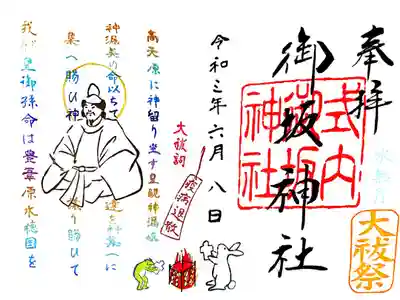 奉拝
水無月
大祓祭
御坂神社
式内
御坂
神社
令和三年六月八日
大祓詞
疫病退散
高天原に神留り坐す皇親神漏岐
神漏美の命以ちて
を神集へに
集へ賜ひ神
り賜ひて
我が皇御孫命は豊葦原水穂国を